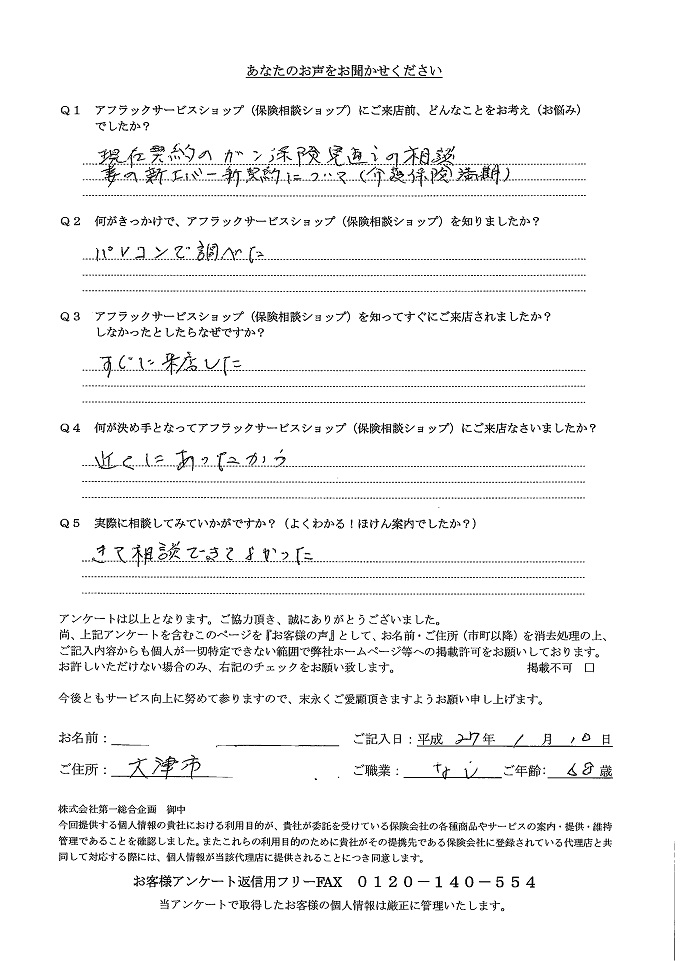 あなたのお声をお聞かせください
Q1 アフラックサービスショップ（保険相談ショップ）にご来店前、どんなことをお考え（お悩み）
でしたか？
現在契約のガン保険見直しの相談
妻の新エバー新契約について（介護保険満期）
Q2 何がきっかけで、アフラックサービスショップ（保険相談ショップ）を知りましたか？
パソコンで調べた
Q3 アフラックサービスショップ（保険相談ショップ）を知ってすぐにご来店されましたか？
しなかったとしたらなぜですか？
すぐに来店した
Q4 何が決め手となってアフラックサービスショップ（保険相談ショップ）にご来店なさいましたか？
近くにあったから
Q5 実際に相談してみていかがですか？（よくわかる！ほけん案内でしたか？）
きて相談できてよかった
アンケートは以上となります。ご協力頂き、誠にありがとうございました。
尚、上記アンケートを含むこのページを『お客様の声』として、お名前・ご住所（市町以降）を消去処理の上、
ご記入内容からも個人が一切特定できない範囲で弊社ホームページ等への掲載許可をお願いしております。
お許しいただけない場合のみ、右記のチェックをお願い致します。 掲載不可 □
今後ともサービス向上に努めて参りますので、末永くご愛顧頂きますようお願い申し上げます。
お名前： ご記入日：平成 27年 1月 10日
ご住所： 大津市 ご職業： なし ご年齢： 68歳
株式会社第一総合企画 御中
今回提供する個人情報の貴社における利用目的が、貴社が委託を受けている保険会社の各種商品やサービスの案内・提供・維持
管理であることを確認しました。またこれらの利用目的のために貴社がその提携先である保険会社に登録されている代理店と共
同して対応する際には、個人情報が当該代理店に提供されることにつき同意します。
お客様アンケート返信用フリーFAX ０１２０－１４０－５５４
当アンケートで取得したお客様の個人情報は厳正に管理いたします。